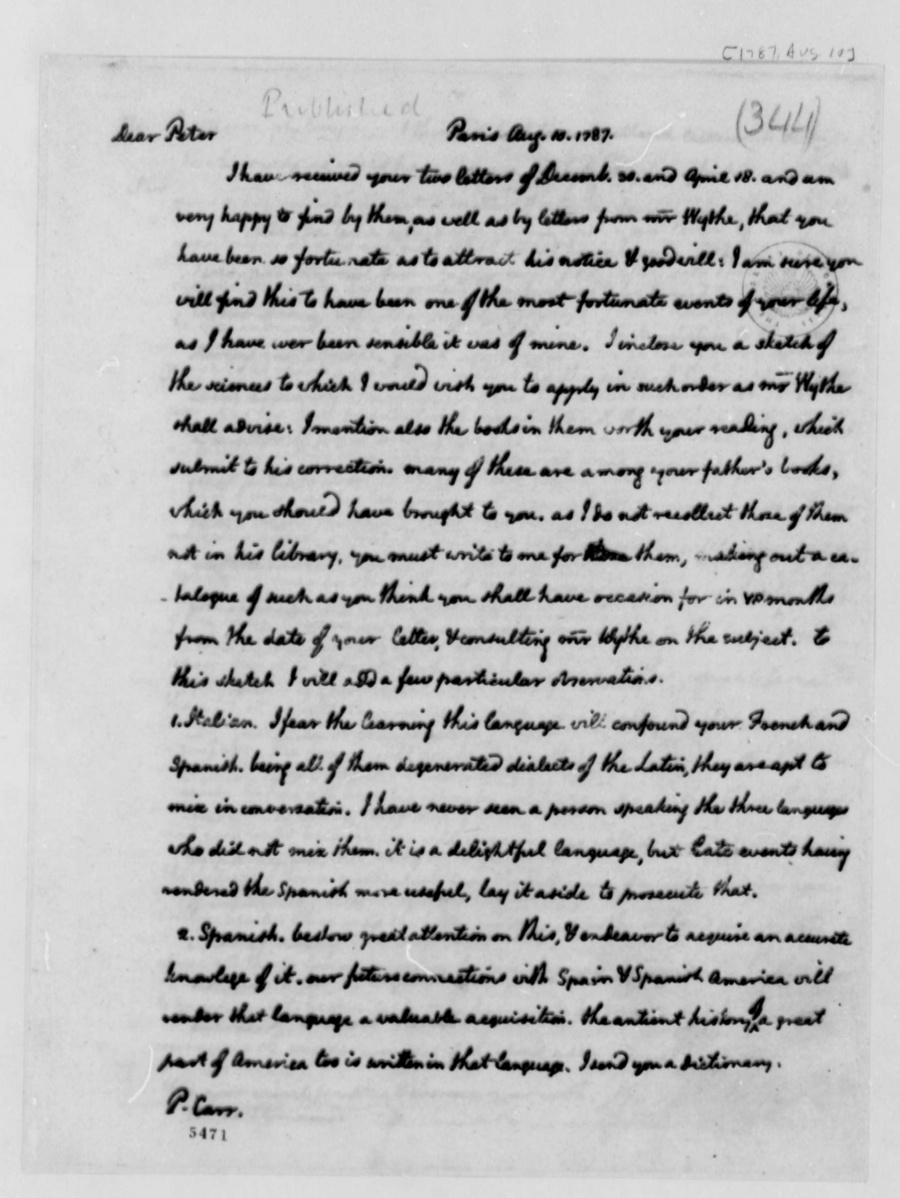 [1787, Aug 10]
Published
(344)
Dear Peter
Paris Aug. 10. 1787.
I have received your two letters of Decemb. 30. and April 18. and am
very happy to find by them, as well as by letters from mr Wythe, that you
have been so fortunate as to attract his notice & goodwill: I am sure you
will find this to have been one of the most fortunate events of your life,
as I have ever been sensible it was of mine. I inclose you a sketch of
the sciences to which I would wish you to apply in such order as mr Wythe
shall advise: I mention also the books in them worth your reading, which
submit to his correction. many of these are among your father's books,
which you should have brought to you. as I do not recollect those of them
not in his library, you must write to me for them, making out a ca-
-talogue of such as you think you shall have occasion for in months
from the date of your letter, & consulting mr Wythe on the subject. to
this sketch I will add a few particular observations.
1. Italian. I fear the learning this language will confound your French and
Spanish. being all of them degenerated dialects of the Latin, they are apt to
mix in conversation. I have never seen a person speaking the three languages
who did not mix them. it is a delightful language, but late events having
rendered the Spanish more useful, lay it aside to prosecute that.
2. Spanish. bestow great attention on this, & endeavor to acquire an accurate
knowlege of it. our future connections with Spain & Spanish America will
render that language a valuable acquisition. the antient history of a great
part of America too is written in that language. I send you a dictionary.
P. Carr.
5471